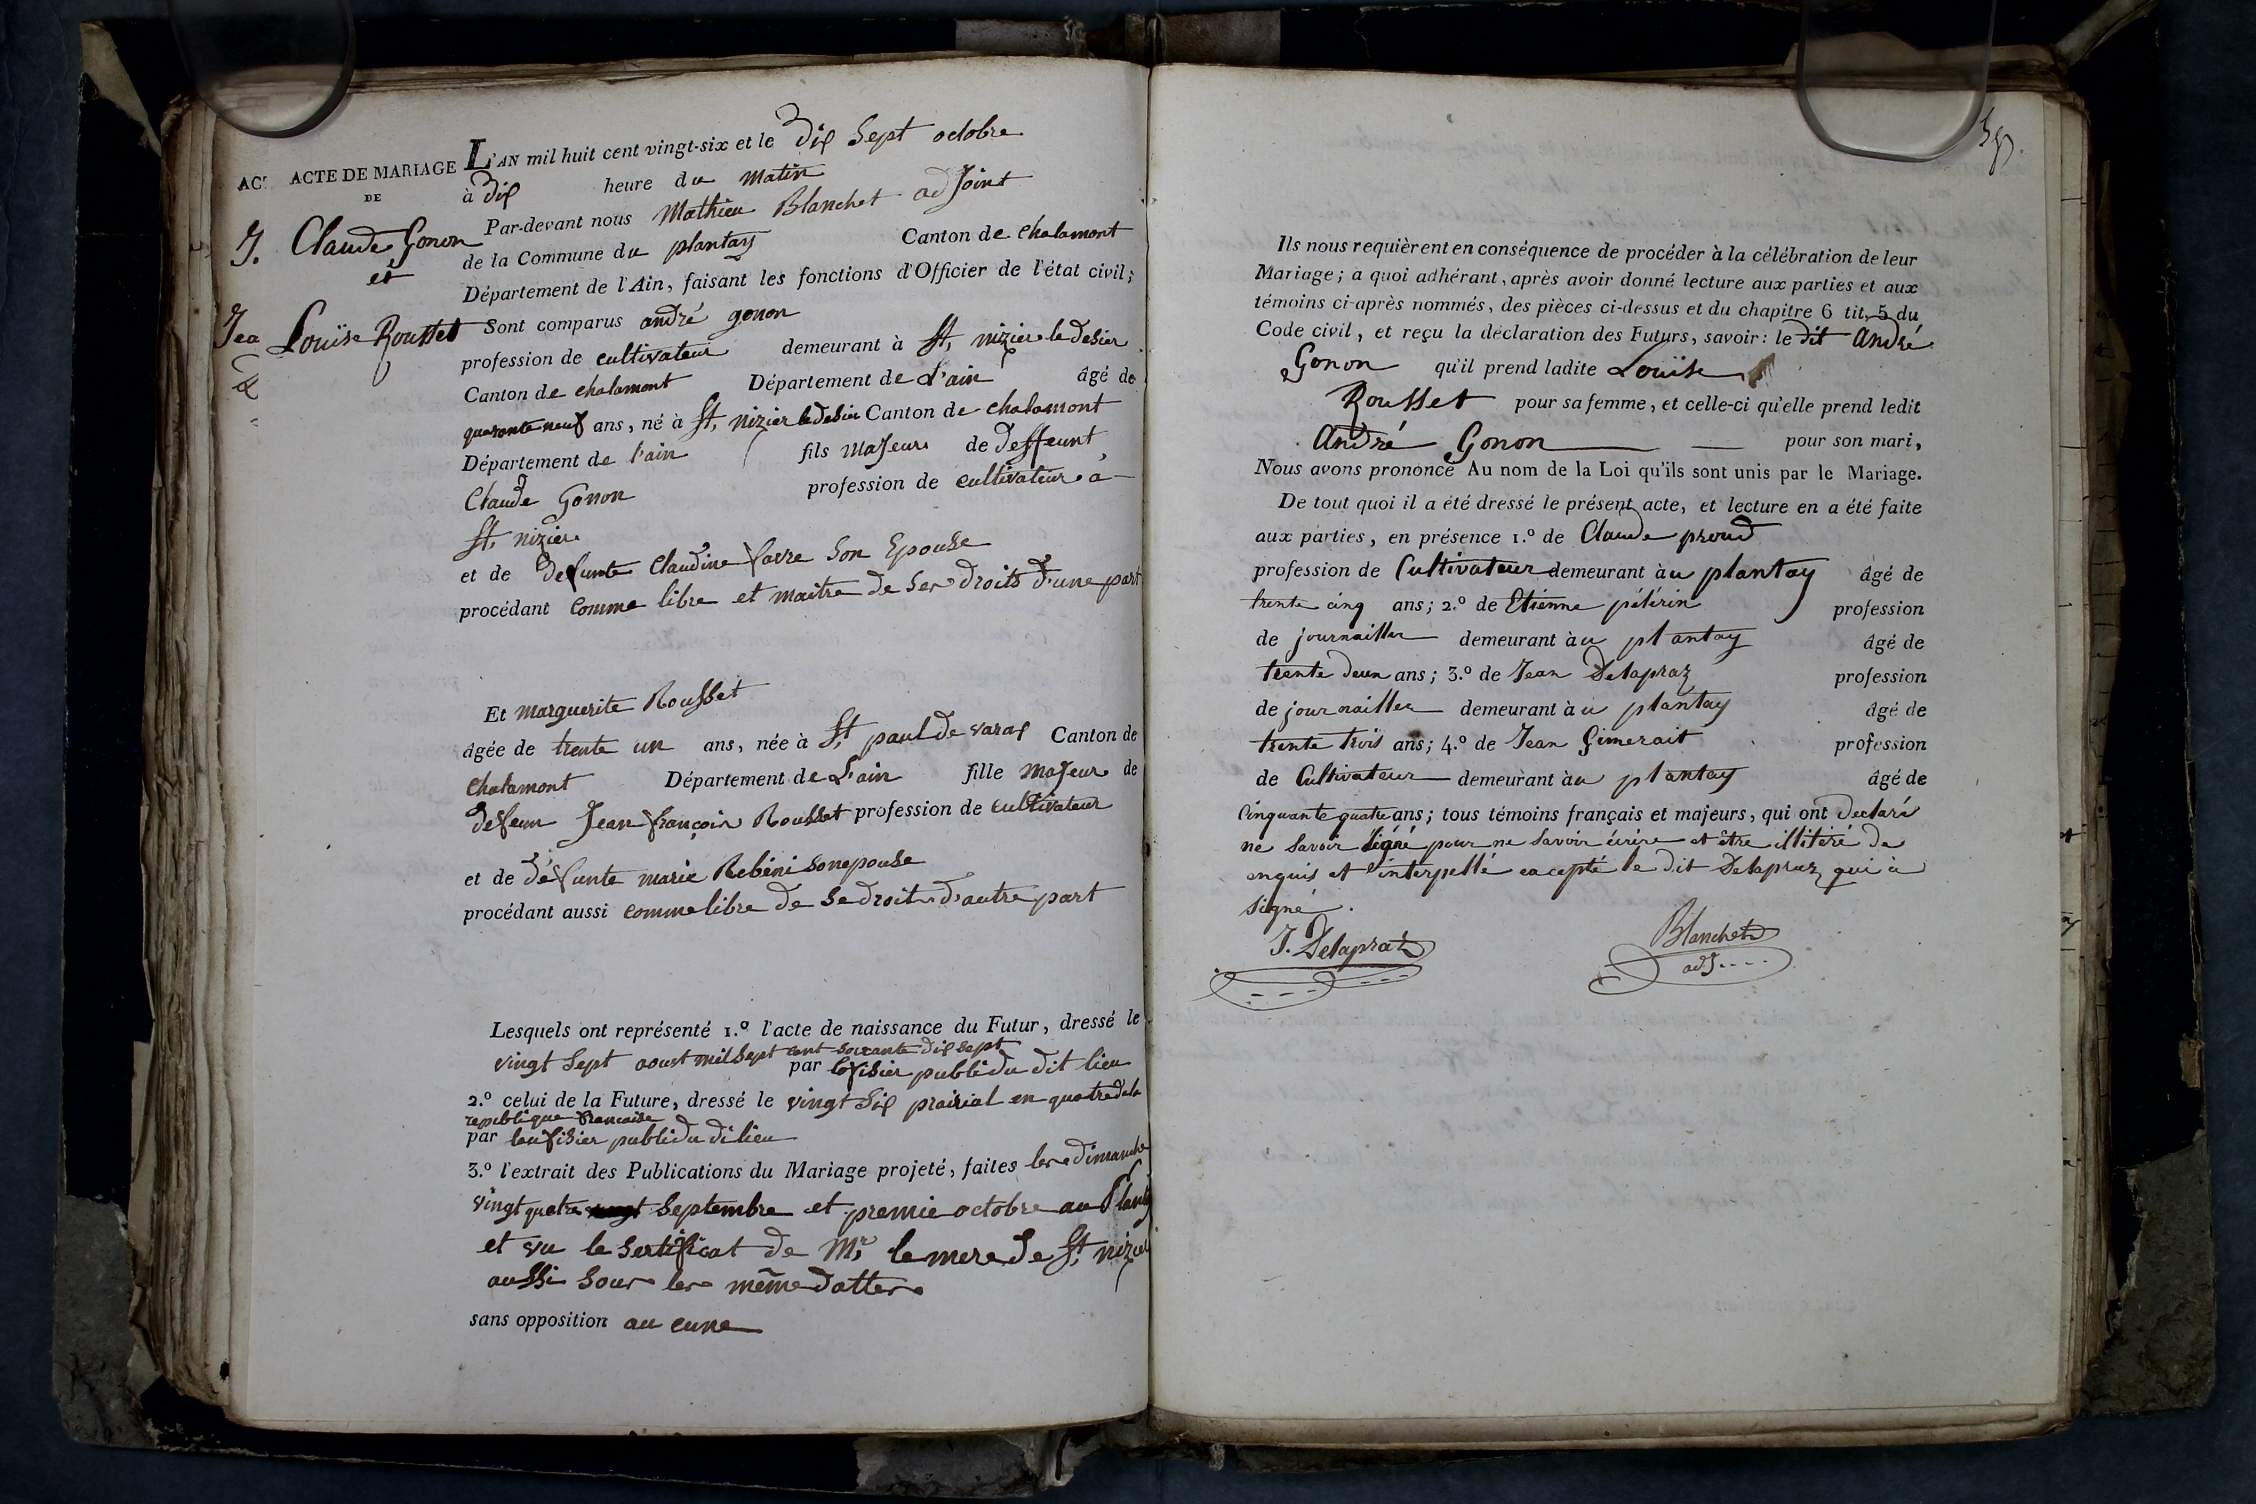 AC
J.
Jea
ACTE DE MARIAGE
DE
Claude Gonon
et
Louise Rousset
L'AN mil huit cent vingt-six et le dix Sept octobre
à dix heure du matin
Par-devant nous Mathieu Blanchet adJoint
de la Commune du plantay Canton de chalamont
Département de l'Ain, faisant les fonctions d'Officier de l'état civil;
Sont comparus andré gonon
profession de cultivateur demeurant à St, nizier le desier
Canton de chalamont Département de L'ain âgé de
quarante neuf ans, né à St, nizier le desier Canton de chalamont
Département de l'ain fils maJeur de deffeunt
Claude Gonon profession de cultivateur à
St, nizier
et de defunte Claudine favre Son Epouse
procédant comme libre et maitre de Ses droits d'une part
Et marguerite Rousset
âgée de trente un ans, née à St, paul de varax Canton de
chalamont Département de L'ain fille maJeur de
defeun Jean françois Rousset profession de cultivateur
et de défunte marie Rebéni son epouse
procédant aussi comme libre de Se droits d'autre part
Lesquels ont représenté 1.º l'acte de naissance du Futur, dressé le
vingt Sept aoust mil Sept cent soixante dix sept
par lofisier publi du dit lieu
2.º celui de la Future, dressé le vingt Six prairial en quatre de la
republique francaise
par loufisier publi du di lieu
3.º l'extrait des Publications du Mariage projeté, faites les dimanche
vingt quatre Septembre et premie octobre au Plantay
et vu le Sertificat de Mr le mere de St, nizier
aussi Sous les même dattes
sans opposition au cune
Ils nous requièrent en conséquence de procéder à la célébration de leur
Mariage; a quoi adhérant, après avoir donné lecture aux parties et aux
témoins ci-après nommés, des pièces ci-dessus et du chapitre 6 tit. 5 du
Code civil, et reçu la déclaration des Futurs, savoir: le dit André
Gonon qu'il prend ladite Louise
Rousset pour sa femme, et celle-ci qu'elle prend ledit
André Gonon pour son mari,
Nous avons prononcé Au nom de la Loi qu'ils sont unis par le Mariage.
De tout quoi il a été dressé le présent acte, et lecture en a été faite
aux parties, en présence 1.º de Claude proud
profession de Cultivateur demeurant à u plantay âgé de
trente cinq ans; 2.º de Etienne pélérin profession
de journailler demeurant à u plantay âgé de
trente deux ans; 3.º de Jean Delapraz profession
de journailler demeurant à u plantay âgé de
trente trois ans; 4.º de Jean Gimerait profession
de Cultivateur demeurant à u plantay âgé de
Cinquante quatre ans; tous témoins français et majeurs, qui ont declaré
ne Savoir Signé pour ne Savoir écrire et être illitéré de
enquis et interpellé excepté le dit Delapraz qui à
Signé.
J. Delapraz
Blanchet
adJ....